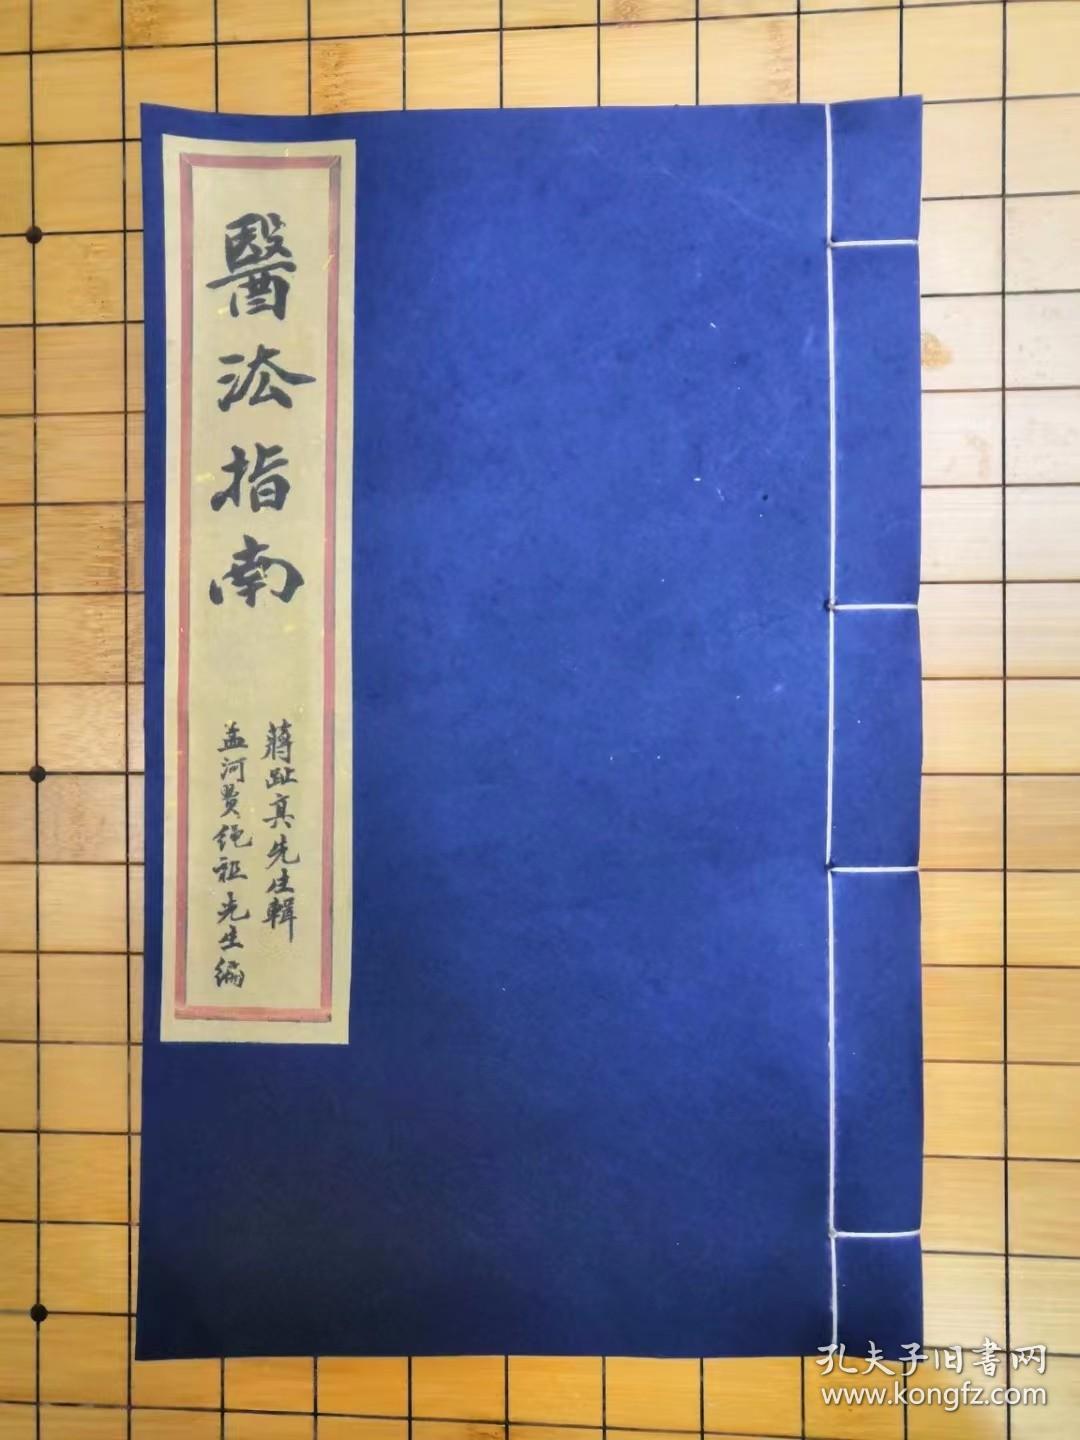 醫法指南
蔣趾真先生輯
孟河費繩祖先生編
孔夫子旧書网
www.kongfz.com